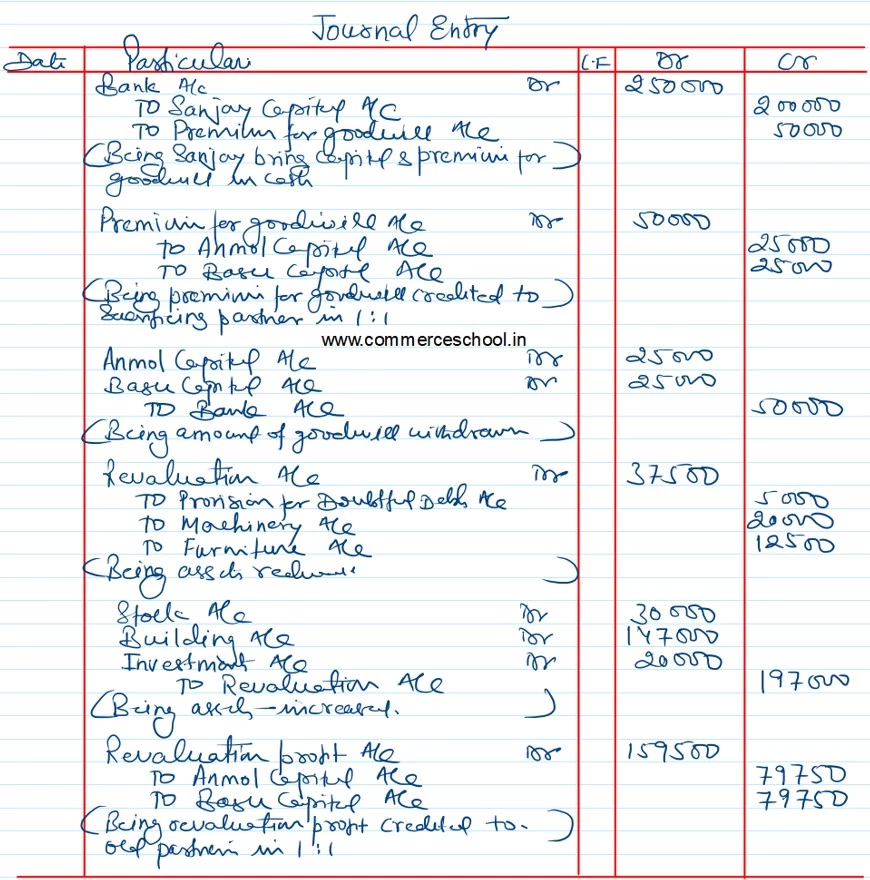 Journal Entry
Date Particular L.F Dr Cr
Bank A/c Dr 250000
To Sanjay Capital A/C 200000
To Premium for goodwill A/c 50000
(Being Sanjay bring capital & premium for)
goodwill in cash
Premium for goodwill A/c Dr 50000
To Anmol Capital A/c 25000
To Basu Capital A/c 25000
(Being premium for goodwill credited to)
Sacrificing partner in 1:1
www.commerceschool.in
Anmol Capital A/c Dr 25000
Basu Capital A/c Dr 25000
To Bank A/c 50000
(Being amount of goodwill withdrawn)
Revaluation A/c Dr 37500
To Provision for Doubtful Debts A/c 5000
To Machinery A/c 20000
To Furniture A/c 12500
(Being assets reduced)
Stock A/c Dr 30000
Building A/c Dr 147000
Investment A/c Dr 20000
To Revaluation A/c 197000
(Being assets increased.)
Revaluation profit A/c Dr 159500
To Anmol Capital A/c 79750
To Basu Capital A/c 79750
(Being revaluation profit credited to.)
old partners in 1:1